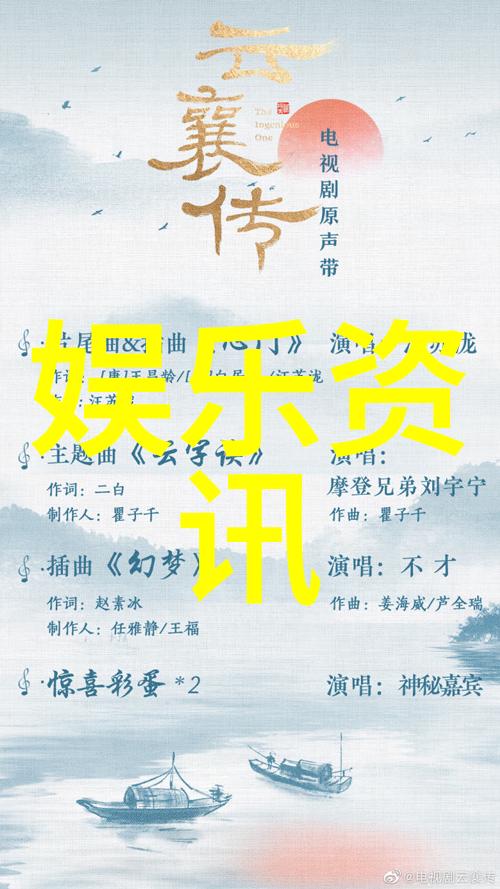 云襄传
The
Ingenious
One
电视剧原声带
片尾曲&插曲《 》 演唱:
作词:[唐]王昌龄/ 汪苏泷
主题曲《云字诀》 演唱:
作词:二白 摩登兄弟刘宇宁
制作人:瞿子千 作曲:瞿子千
插曲《幻梦》 演唱:不才
作词:赵素冰 作曲:姜海威/芦全瑞
制作人:任雅静/王福
惊喜彩蛋*2 演唱:神秘嘉宾
娱乐资
讯
@电视剧云襄传